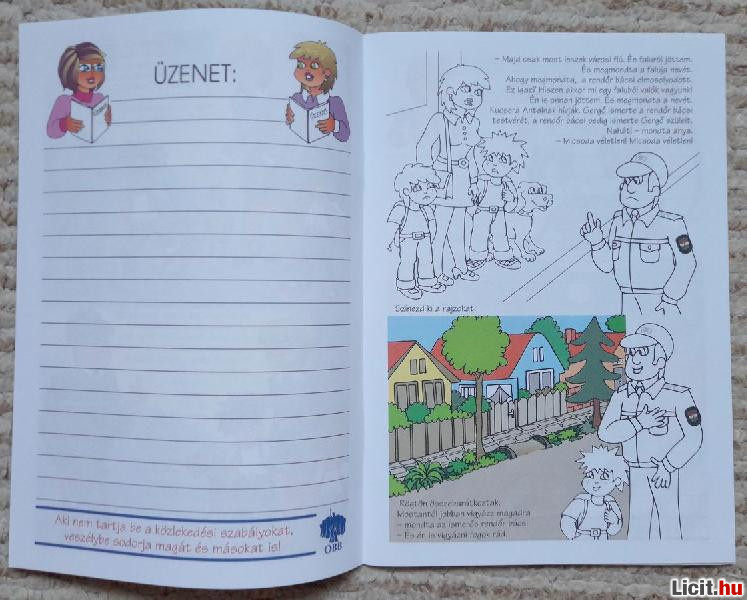 ÜZENET:
Aki nem tartja be a közlekedési szabályokat,
veszélybe sodorja magát és másokat is!
OBB
– Majd csak most leszek városi fiú. Én faluról jöttem.
És megmondta a faluja nevét.
Ahogy megmondta, a rendőr bácsi elmosolyodott.
Ez igaz? Hiszen akkor mi egy faluból valók vagyunk!
Én is onnan jöttem. És megmondta a nevét.
Kucsera Antalnak hívják. Gergő ismerte a rendőr bácsi
testvérét, a rendőr bácsi pedig ismerte Gergő szüleit.
Nahát! – mondta anya.
– Micsoda véletlen! Micsoda véletlen!
Színezd ki a rajzokat
Rögtön összebarátkoztak.
Mostantól jobban vigyázz magadra
– mondta az ismerős rendőr bácsi.
– És én is vigyázni fogok rád.
Licit.hu